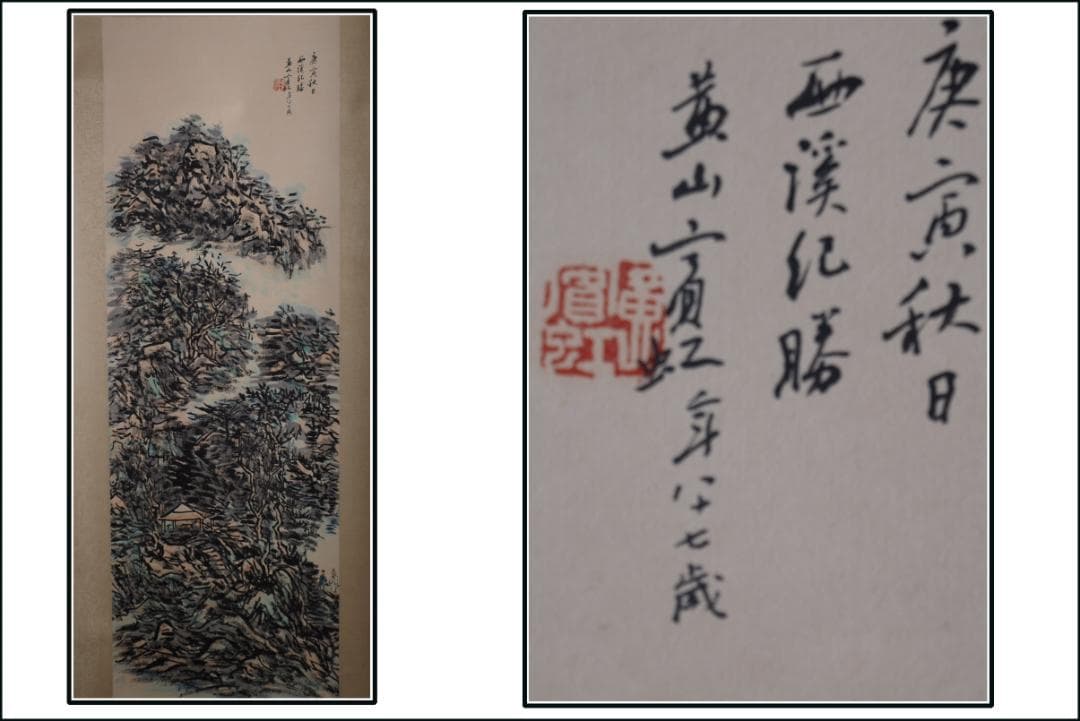 庚寅秋日
西溪紀勝
黃山賓虹年八十七歲